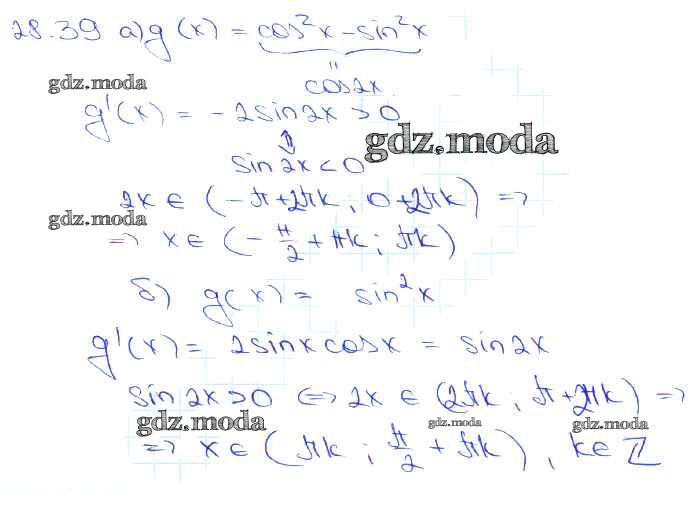 28.39 а) g(x) = cos²x - sin²x
"
gdz.moda
cos2x
g'(x) = -2sin2x > 0
⇕
gdz.moda
sin2x < 0
2x ∈ (-π+2πk; 0+2πk) ⇒
gdz.moda
⇒ x ∈ (-π/2 + πk; πk)
б) g(x) = sin²x
g'(x) = 2sinxcosx = sin2x
sin2x>0 ⇔ 2x ∈ (2πk; π+2πk) ⇒
gdz.moda gdz.moda gdz.moda
⇒ x ∈ (πk; π/2 + πk), k∈Z